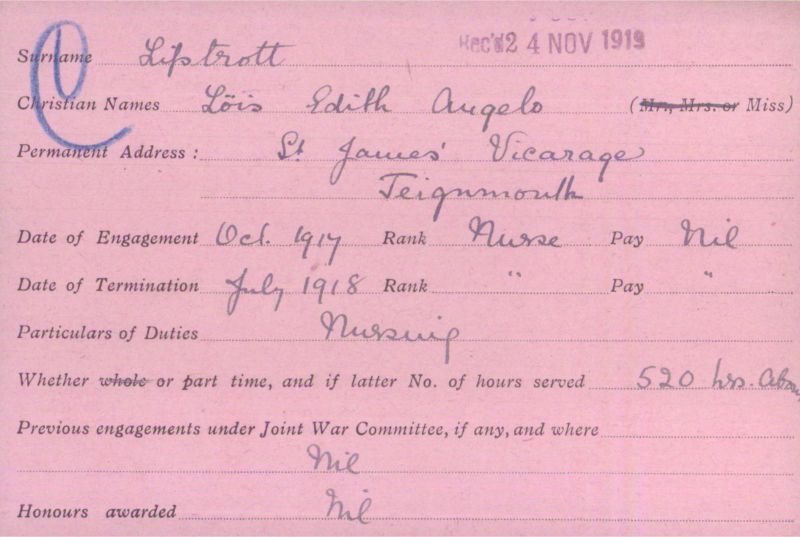 Rec'd 24 NOV 1919
Surname Liptrott
Christian Names Löis Edith Angelo (Mr., Mrs. or Miss)
Permanent Address: St James' Vicarage
Teignmouth
Date of Engagement Oct. 1917 Rank Nurse Pay Nil
Date of Termination July 1918 Rank " Pay "
Particulars of Duties Nursing
Whether whole or part time, and if latter No. of hours served 520 hrs. about
Previous engagements under Joint War Committee, if any, and where
Nil
Honours awarded Nil